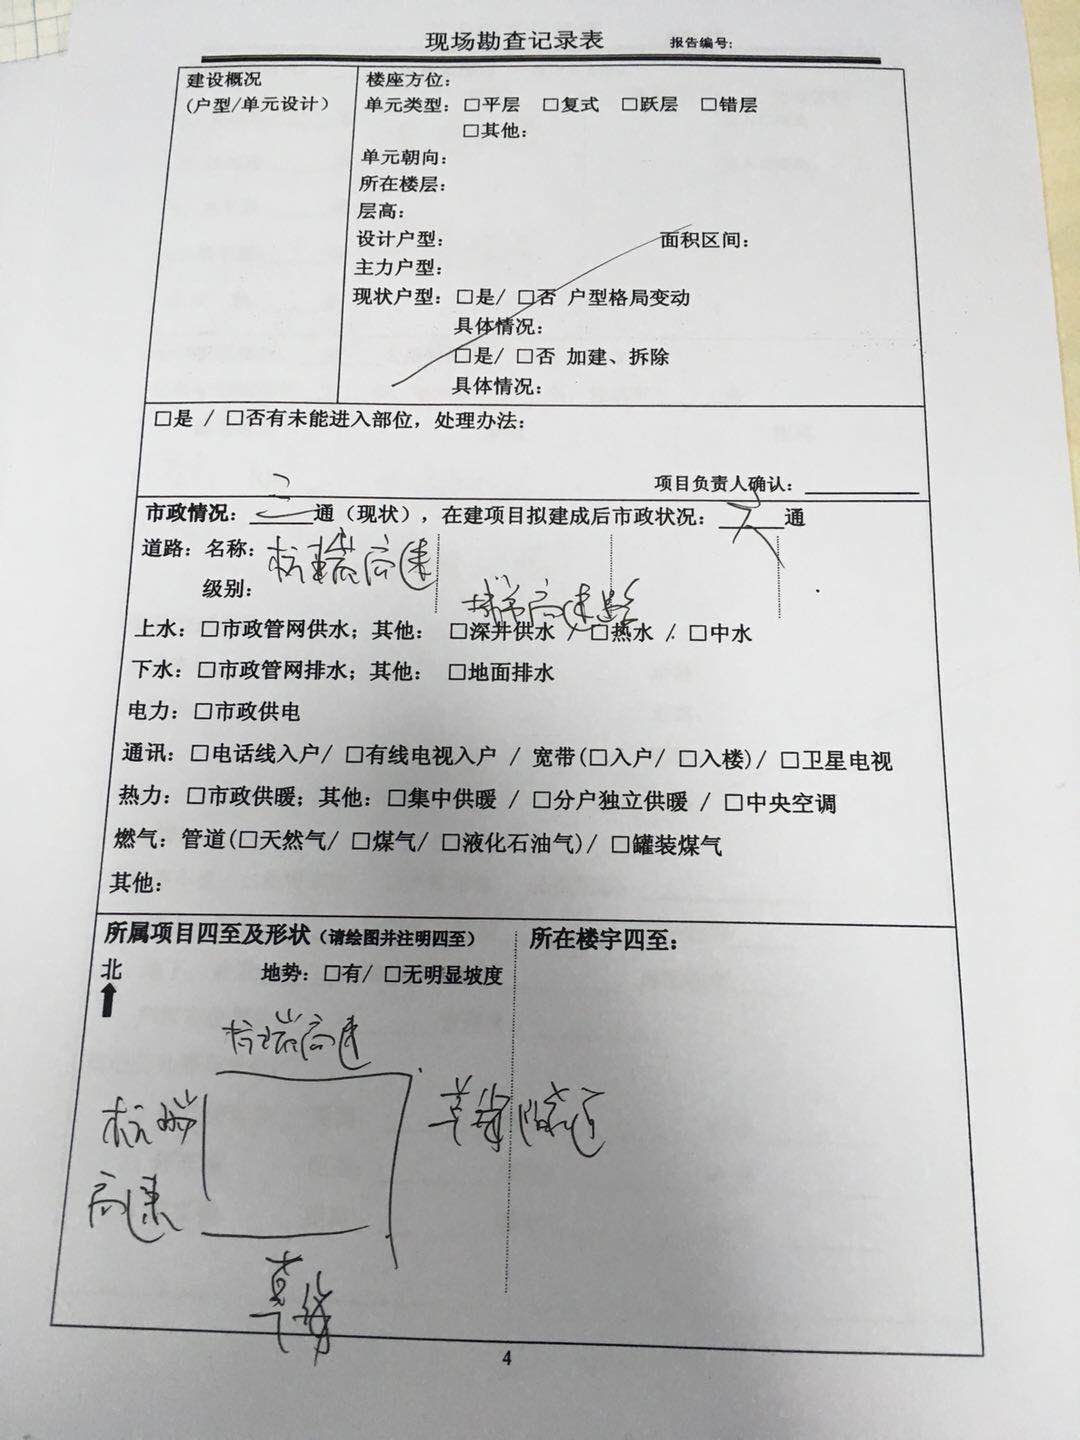 现场勘查记录表 报告编号:
建设概况
(户型/单元设计)
楼座方位:
单元类型: □平层 □复式 □跃层 □错层
□其他:
单元朝向:
所在楼层:
层高:
设计户型: 面积区间:
主力户型:
现状户型: □是/ □否 户型格局变动
具体情况:
□是/ □否 加建、拆除
具体情况:
□是 / □否有未能进入部位, 处理办法:
项目负责人确认:
市政情况: 三通 (现状), 在建项目拟建成后市政状况: 通
道路: 名称: 杭瑞高速
级别: 高速路
上水: □市政管网供水; 其他: □深井供水 / □热水 / □中水
下水: □市政管网排水; 其他: □地面排水
电力: □市政供电
通讯: □电话线入户/ □有线电视入户 / 宽带(□入户/ □入楼)/ □卫星电视
热力: □市政供暖; 其他: □集中供暖 / □分户独立供暖 / □中央空调
燃气: 管道(□天然气/ □煤气/ □液化石油气)/ □罐装煤气
其他:
所属项目四至及形状 (请绘图并注明四至) 所在楼宇四至:
北 地势: □有/ □无明显坡度
杭瑞高速
杭瑞
高速
4